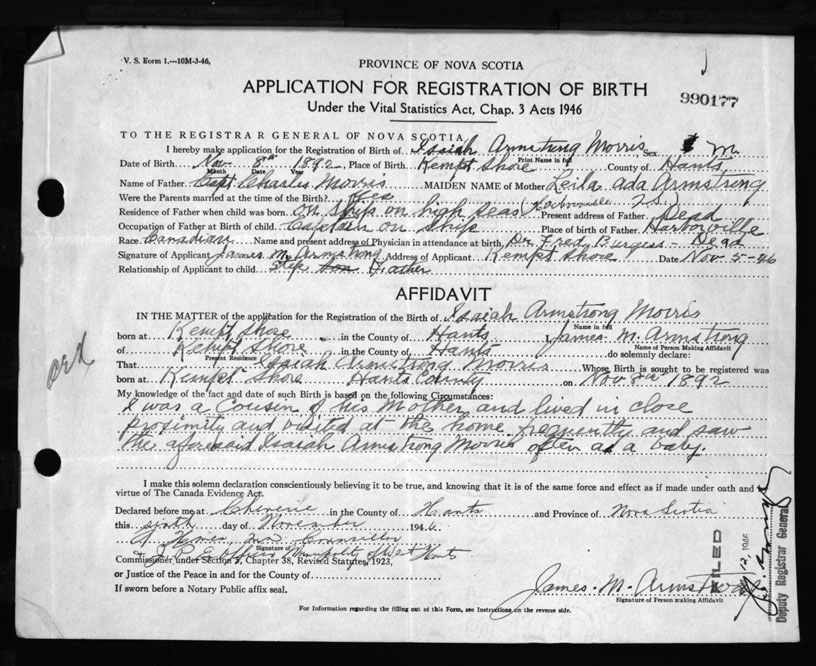 V. S. Form 1.—10M-3-46,
PROVINCE OF NOVA SCOTIA
APPLICATION FOR REGISTRATION OF BIRTH
990177
Under the Vital Statistics Act, Chap. 3 Acts 1946
TO THE REGISTRAR GENERAL OF NOVA SCOTIA
I hereby make application for the Registration of Birth of Isaiah Armstrong Morris Sex M
Print Name in full
Date of Birth Nov 8th 1892 Place of Birth Kempt Shore County of Hants
Month Date Year
Name of Father Capt Charles Morris MAIDEN NAME of Mother Leila Ada Armstrong
Were the Parents married at the time of Birth? Yes
Residence of Father when child was born on ship on high seas (Harbourville N.S.) Present address of Father Dead
Occupation of Father at Birth of child Captain on ship Harborville
Race Canadian Name and present address of Physician in attendance at birth Dr. Fred Burgess - Dead
Signature of Applicant James M. Armstrong Address of Applicant Kempt Shore Date Nov 5-46
Relationship of Applicant to child Step son Father
AFFIDAVIT
IN THE MATTER of the application for the Registration of Birth of Isaiah Armstrong Morris
Name in full
born at Kempt Shore in the County of Hants I, James M. Armstrong
Name of Person Making Affidavit
of Kempt Shore in the County of Hants do solemnly declare:
Present Residence
That Isaiah Armstrong Morris Whose Birth is sought to be registered was
born at Kempt Shore Hants County on Nov 8th 1892
My knowledge of the fact and date of such Birth is based on the following Circumstances:
I was a Cousin of his Mother and lived in close
proximity and visited at the home frequently and saw
the aforesaid Isaiah Armstrong Morris often as a baby.
I make this solemn declaration conscientiously believing it to be true, and knowing that it is of the same force and effect as if made under oath and by
virtue of The Canada Evidence Act.
Declared before me at Cheverie in the County of Hants and Province of Nova Scotia
this sixth day of November 1946.
Councillor
Signature of
Municipality of West Hants
Commissioner under Section 3, Chapter 38, Revised Statutes, 1923,
or Justice of the Peace in and for the County of
If sworn before a Notary Public affix seal.
James. M. Armstrong
Signature of Person making Affidavit
For Information regarding the filling out of this Form, see Instructions on the reverse side.
FILED
Deputy Registrar General